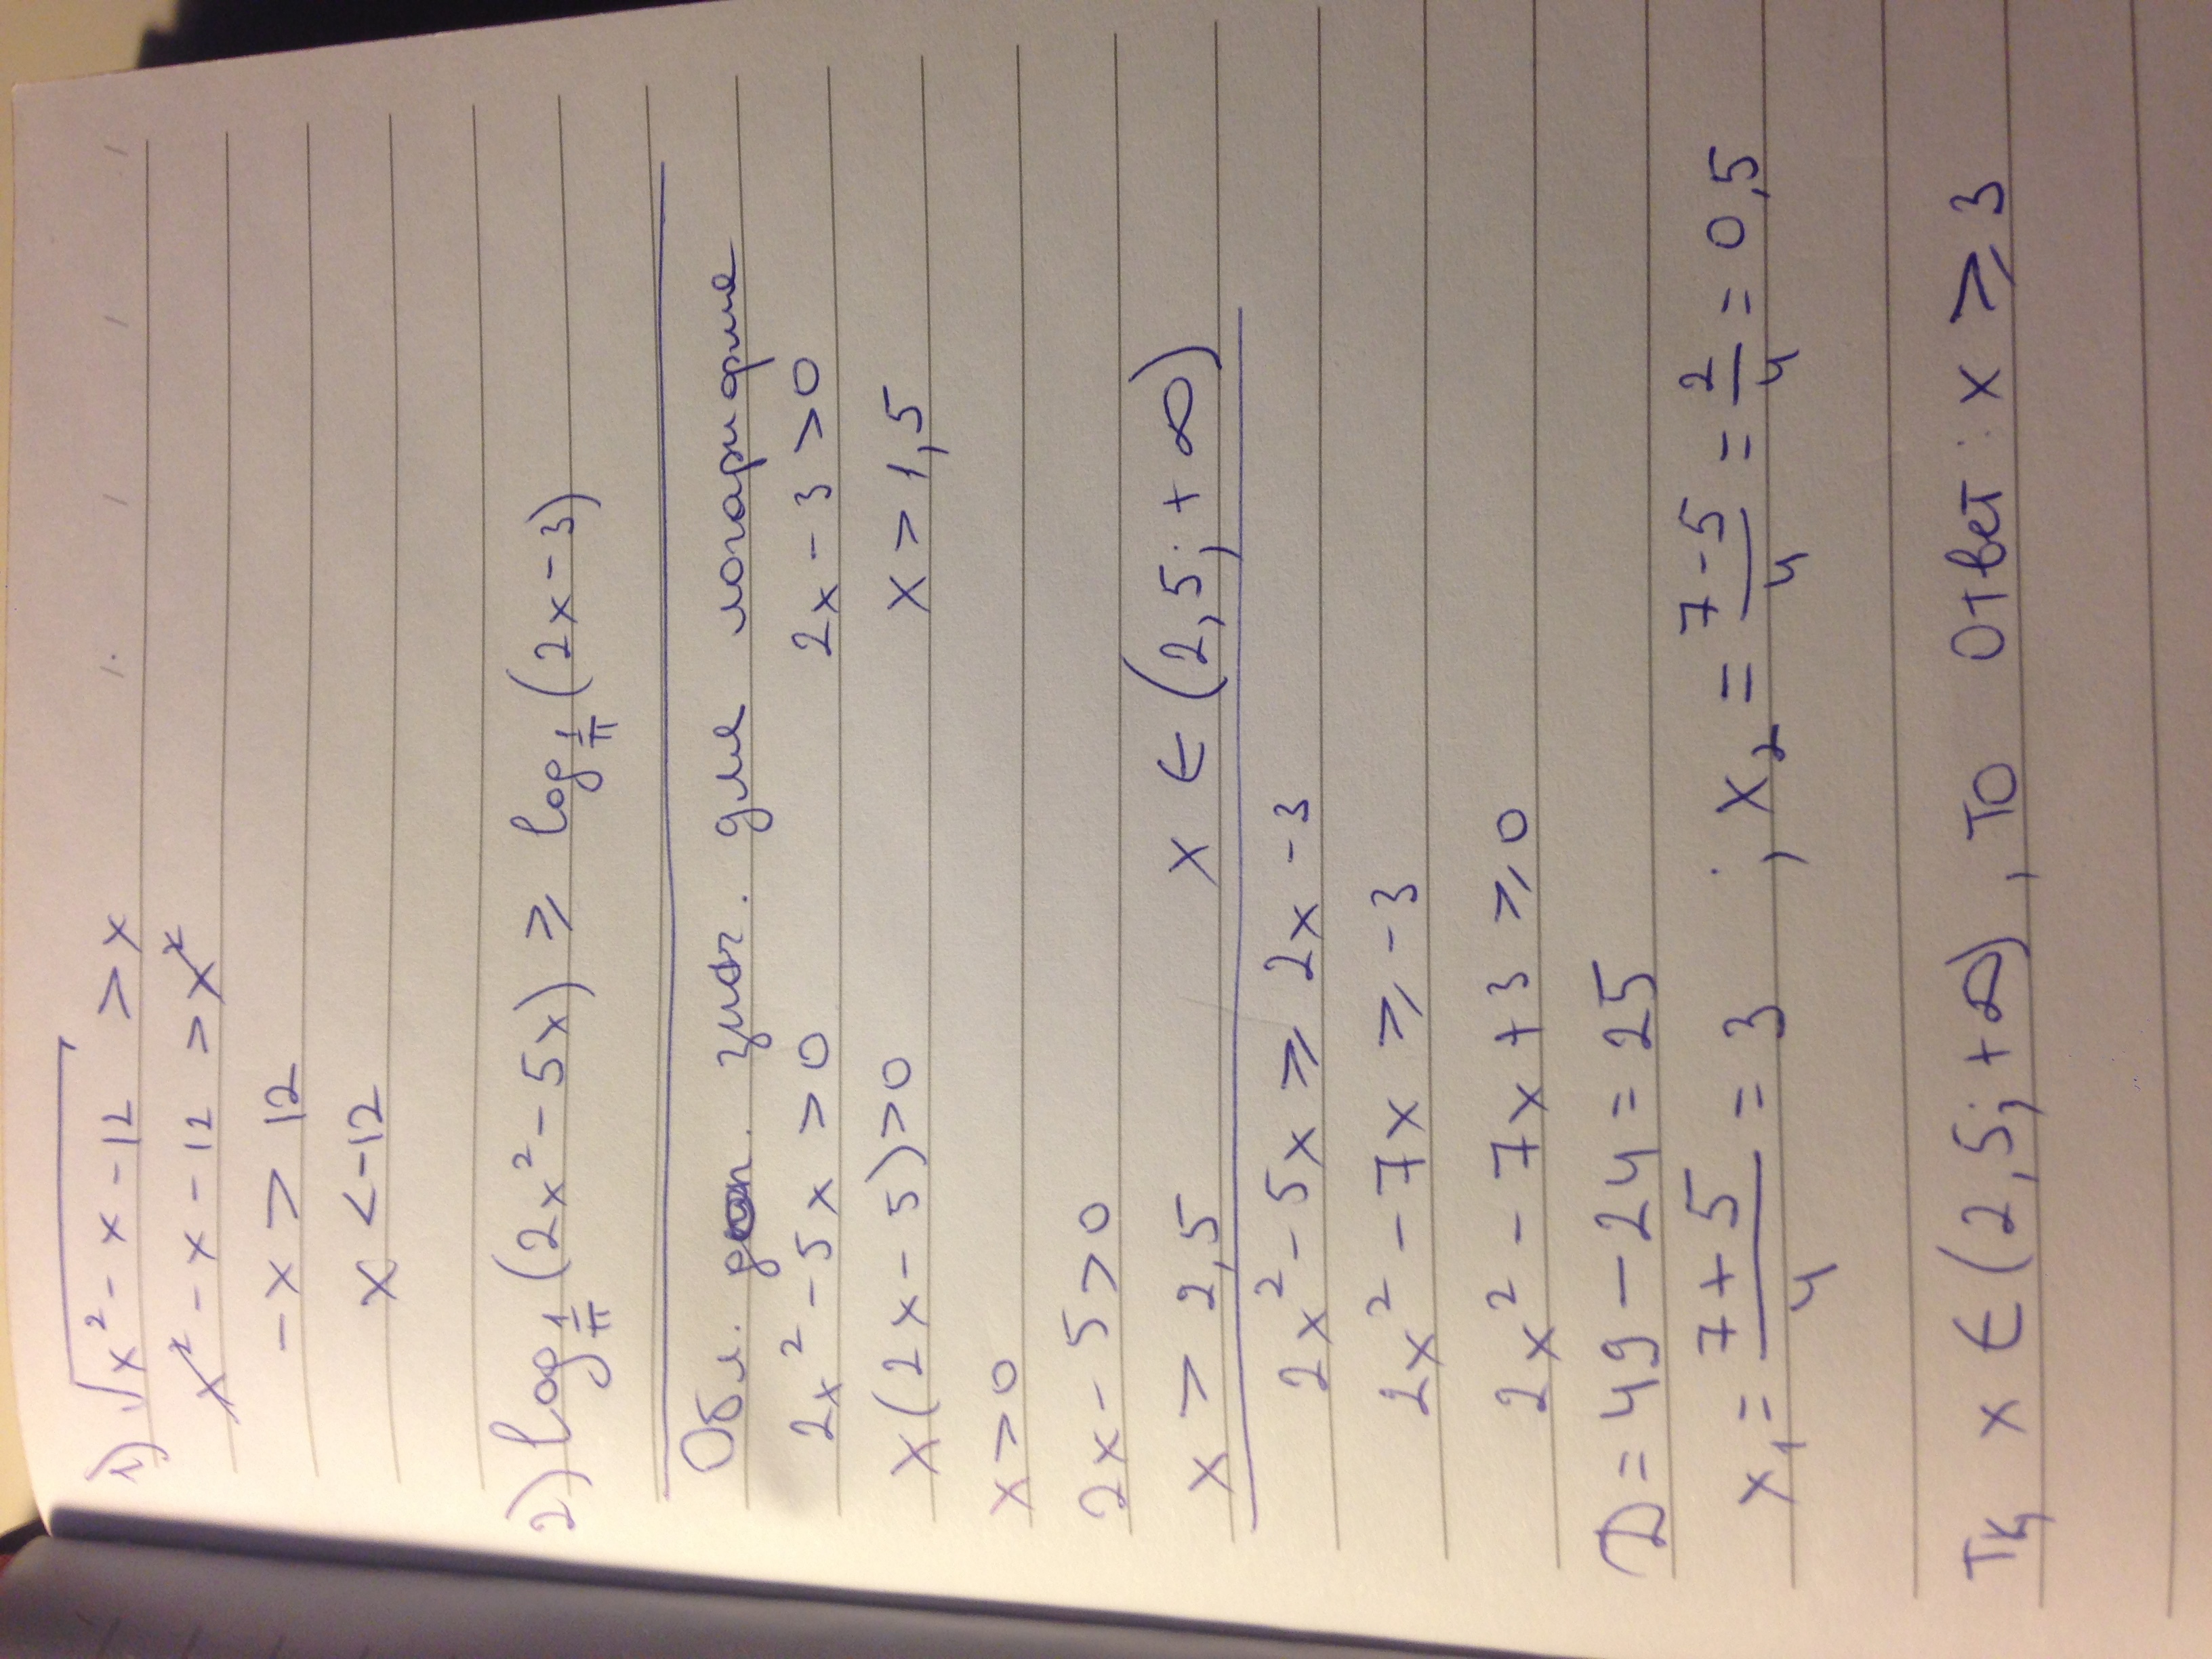 1) √x² - x - 12 > x
x² - x - 12 > x²
- x > 12
x < -12
2) log 1/π (2x² - 5x) ≥ log 1/π (2x - 3)
Обл. доп. знач. для логарифма
2x² - 5x > 0 2x - 3 > 0
x(2x - 5) > 0 x > 1,5
x > 0
2x - 5 > 0
x > 2,5 x ∈ (2,5; + ∞)
2x² - 5x ≥ 2x - 3
2x² - 7x ≥ -3
2x² - 7x + 3 ≥ 0
D = 49 - 24 = 25
x₁ = (7 + 5)/4 = 3 ; x₂ = (7 - 5)/4 = 2/4 = 0,5
Тк x ∈ (2,5; +∞), то Ответ: x ≥ 3